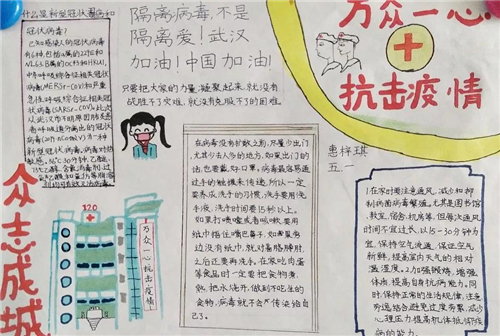 什么是新型冠状病毒和
冠状病毒?
已知感染人的冠状病毒
有6种,包括α属的229E和
NL63,β属的OC43和HKU1,
中东呼吸综合征相关冠状
病毒(MERSr-CoV)和严重
急性呼吸综合征相关冠
状病毒(SARSr-CoV),此次
从武汉市不明原因肺炎患
者呼吸道分离出的冠状
病毒(2019-nCoV)为一种
新型冠状病毒。病毒对热
敏感,56℃30分钟、乙醚、
75%乙醇、含氯消毒剂、过
隔离病毒,不是
隔离爱!武汉
加油!中国加油!
只要把大家的力量,凝聚起来,就没有
战胜不了灾难,就没有克服不了的困难。
万众一心
抗击疫情
惠梓琪
五一
众志成城
120
万众一心抗击疫情
在病毒没有扩散之前,尽量少出门,
尤其少去人多的地方,如果出门的
话,也要戴好口罩。病毒最容易通
过手的触摸来传递,所以一定
要养成洗手的习惯,洗手要用洗
手液,洗手时间要15秒以上。
如果打喷嚏或者咳嗽,要用
纸巾捂住嘴巴鼻子,如果旁
边没有纸巾,就对着胳膊肘,
之后还要再洗手。在家吃肉蛋
等食品时一定要把食物煮
熟,把水烧开,做到不吃生的
食物,病毒就不会传染给自己
了。
1.在家时要注意通风,减少和抑
制病菌病毒繁殖。尤其是图书馆
教室,宿舍,机房等,但每次通风时
间不宜过长,以15-30分钟为
宜,保持空气流通,保证空气
新鲜,提高室内天气的相对
温湿度。2.加强锻炼,增强
体质,提高自身抗病能力。同
时,保持正常的生活规律,注意
劳逸结合避免过度劳累,减少
心理压力,提高机体抵御疾
病的能力。